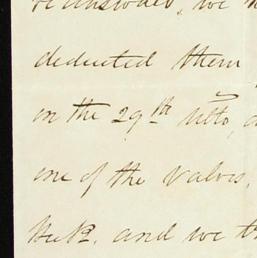 we
deducted them
on the 29th Ulto,
one of the Values,
and we